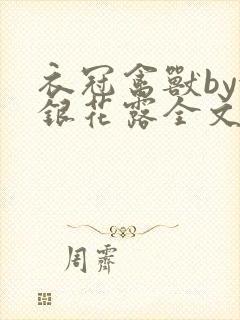 衣冠禽獸by
銀花露全文
周霽